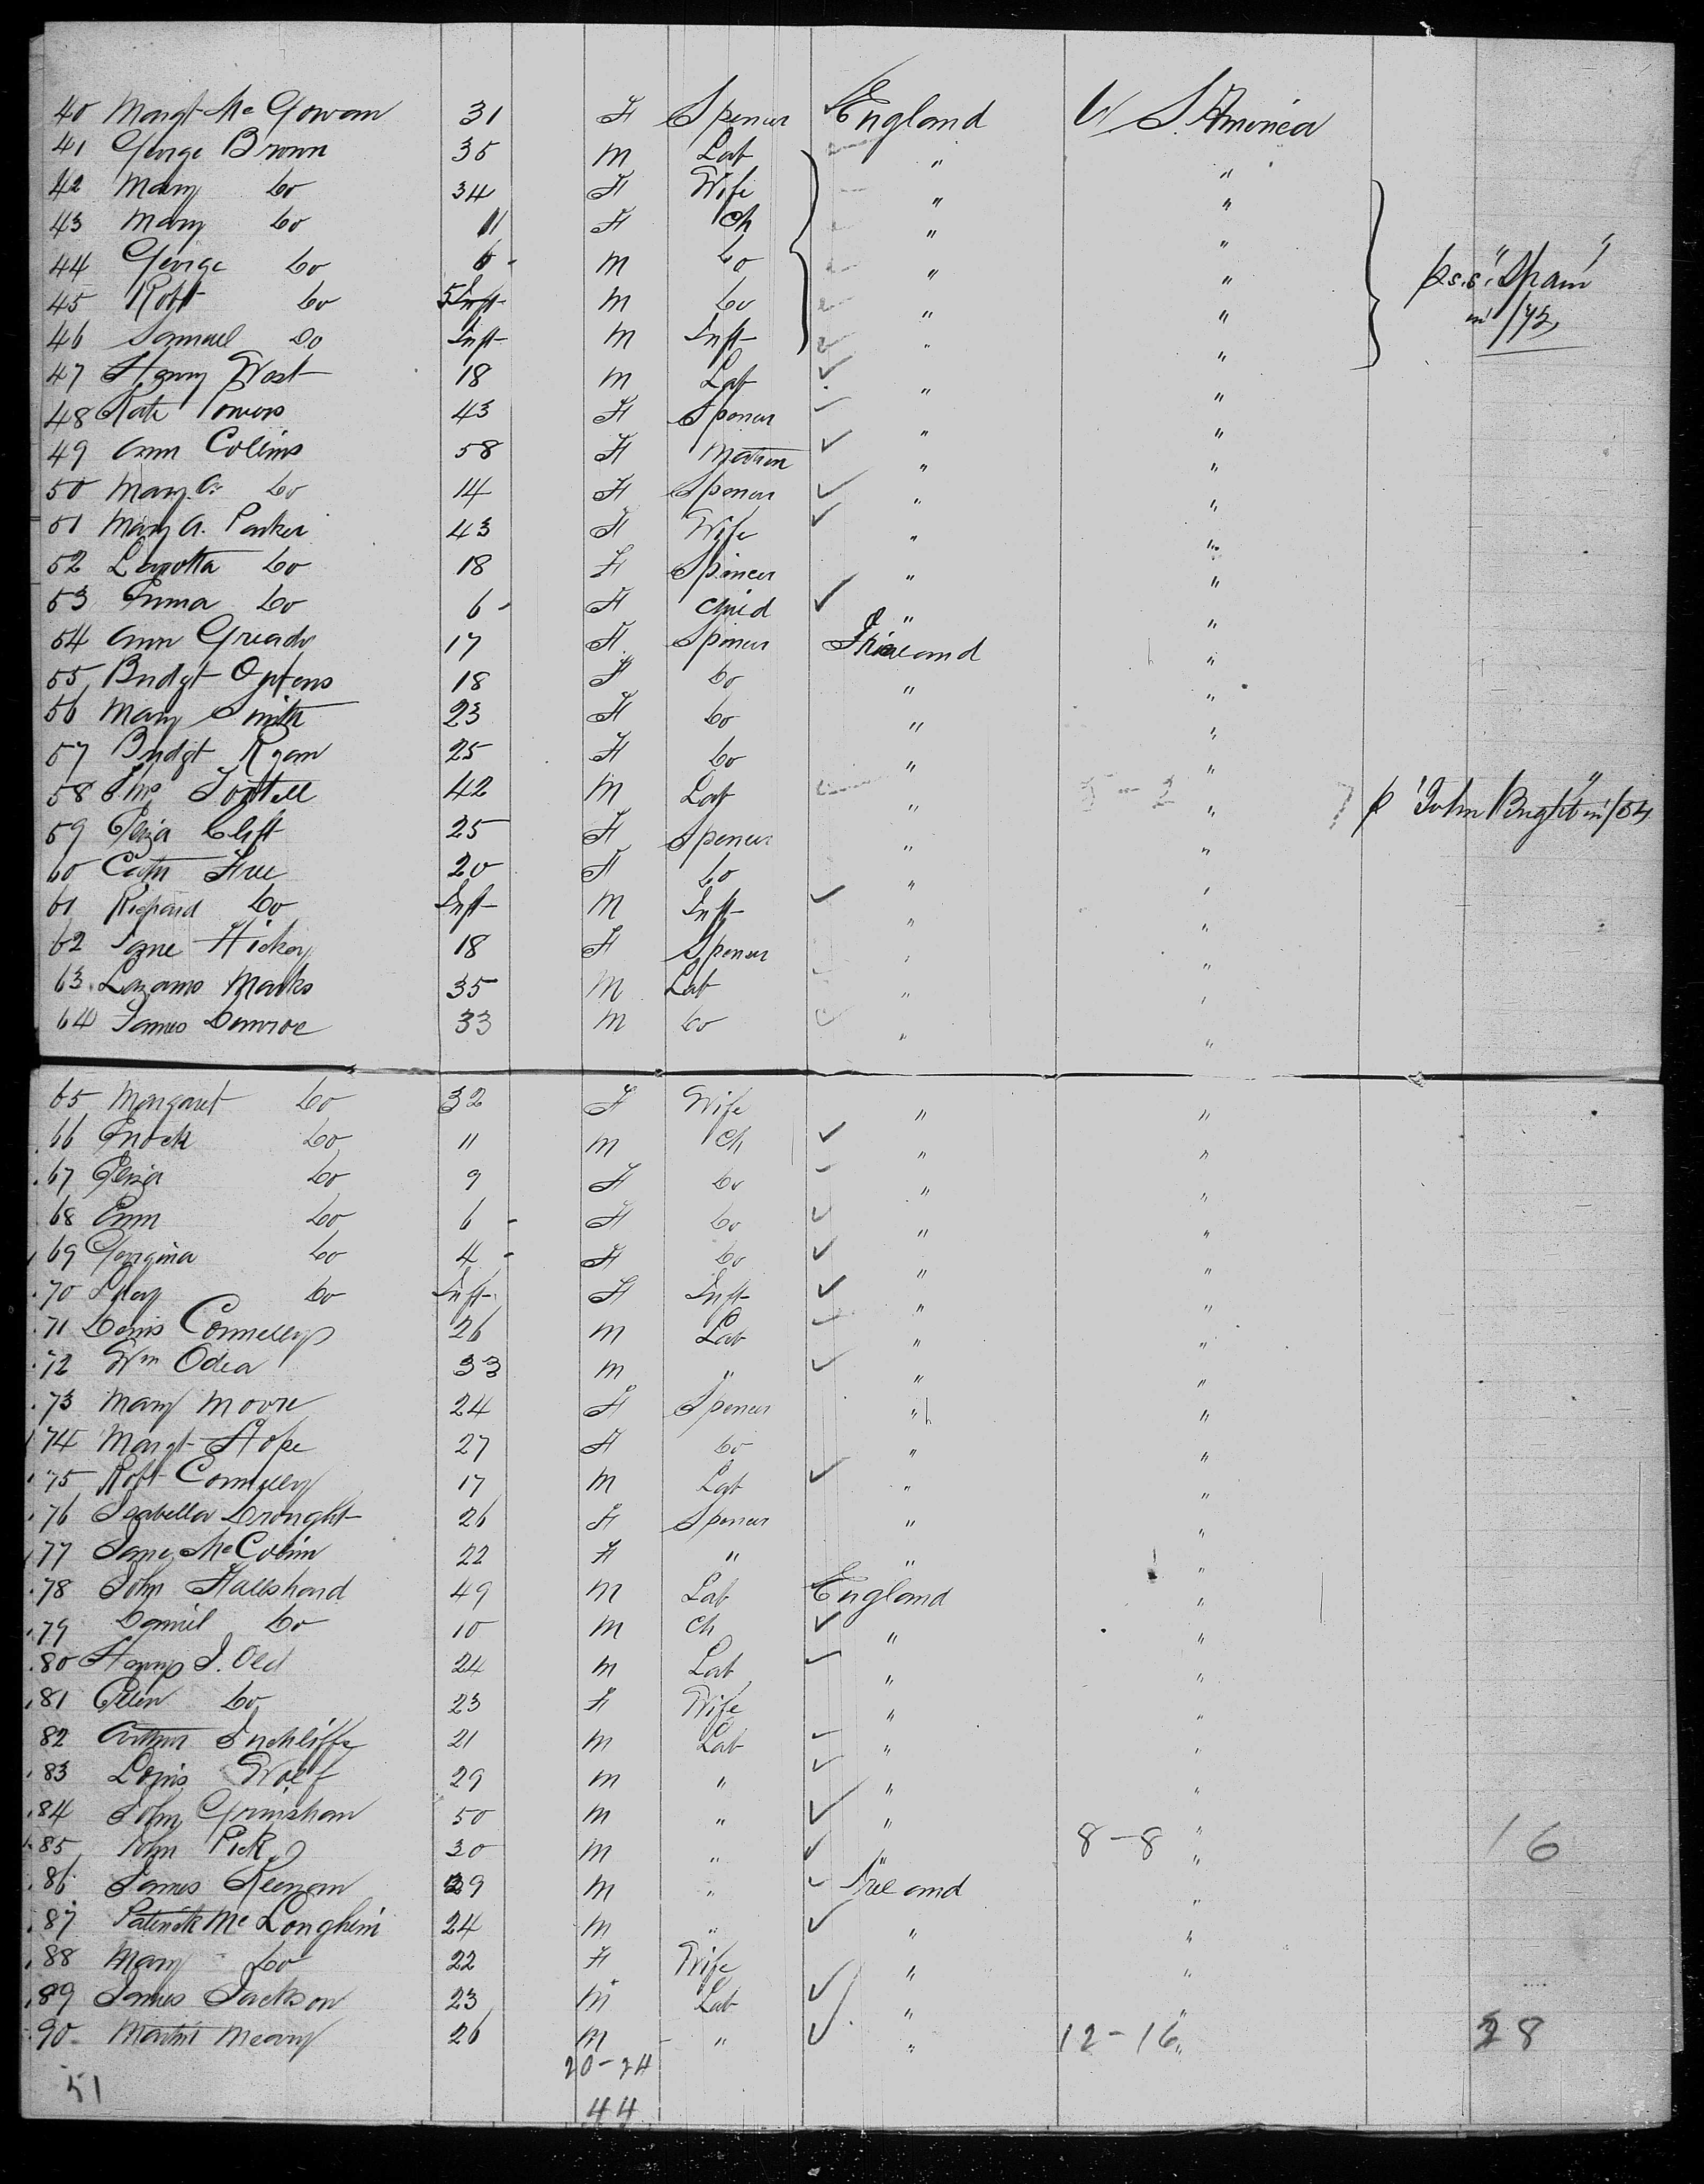 40 Margt McGowan 31 F Spinser England U. S. America
41 George Brown 35 M Lab " "
42 Mary Do 34 F Wife " "
43 Mary Do 11 F Ch " "
44 George Do 6 M Do " " p s.s. "Spain"
45 Robt Do 5 Inft M Do " " in /73
46 Samuel Do Inft M Inft " "
47 Henry West 18 M Lab " "
48 Kate Powers 43 F Spinser " "
49 Ann Collins 58 F Matron " "
50 Mary A. Do 14 F Spinser " "
51 Mary A. Parker 43 F Wife " "
52 Do 18 F Spinser " "
53 Emma Do 6 F Child " "
54 Ann Gready 17 F Spinser Ireland "
55 Bridgt 18 F Do " "
56 Mary Smith 23 F Do " "
57 Bridgt Ryan 25 F Do " "
58 42 M Lab " " p "John Bright" in /54
59 Eliza Clift 25 F Spinser " "
60 Cath Free 20 F Do " "
61 Richard Do Inft M Inft " "
62 Jane Hickey 18 F Spinser " "
63 Lazarus Marks 35 M Lab " "
64 James 33 M Do " "
65 Margaret Do 32 F Wife " "
66 Enock Do 11 M Ch " "
67 Eliza Do 9 F Do " "
68 Ann Do 6 F Do " "
69 Georgina Do 4 F Do " "
70 Lucy Do Inft F Inft " "
71 Denis Connelly 26 M Lab " "
72 Wm Odea 33 M " " "
73 Mary Moore 24 F Spinser " "
74 Margt Hope 27 F Do " "
75 Robt Connelly 17 M Lab " "
76 Isabella Drought 26 F Spinser " "
77 Jane 22 F " " "
78 John 49 M Lab England "
79 Daniel Do 10 M Ch " "
80 Henry J. Old 24 M Lab " "
81 Ellen Do 23 F Wife " "
82 Arthur Inchliffe 21 M Lab " "
83 Louis Wolf 29 M " " "
84 John Grimshaw 50 M " " "
85 John Pick 30 M " " 8-8 " 16
86 James Keenan 39 M " Ireland "
87 Patrick McLoughlin 24 M " " "
88 Mary Do 22 F Wife " "
89 James Jackson 23 M Lab " "
90 Martin Meany 26 M " " 12-16 " 28
20-24
51 44